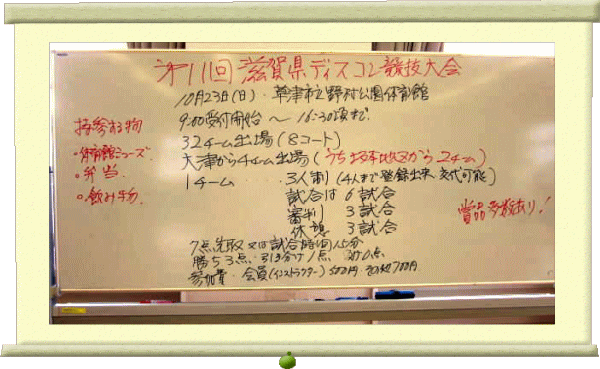 第11回 滋賀県ディスコン競技大会
10月23日(日)・草津市立野村公園体育館
9:00受付開始 ~ 16:30頃まで
32チーム出場 (8コート)
大津から4チーム出場 (うち坂本地区から2チーム)
1チーム ・3人制 (4人まで登録出来、交代可能)
試合は 6試合
審判 3試合
休憩 3試合
7点先取 又は試合時間15分
勝ち3点・引き分け1点 負け0点
参加費・会員(インストラクター)500円・700円
持参する物
・体育館シューズ
・弁当
・飲み物
賞品多数あり!